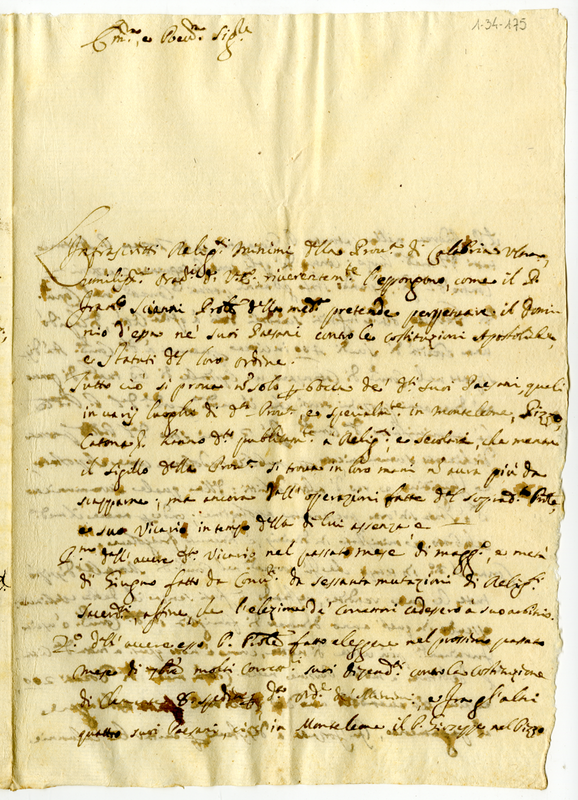 1-34-175
Em.mo, e Rev.mo Sig.re
Infrascritti Relig.si Minimi della Prov.a di Calabria Ultra,
humiliss.i Orat.ri di V. Em. riverentem.te l'esspongono, come il P.
Fran.co Scianni Prole della med.a pretende perpetuare il domi-
nio d'essa ne' suoi Paesani contro le costituzioni Apostoliche
e Statuti del loro ordine.
Tutto ciò si prova nō solo p bocca de' d.ti suoi Paesani quali
in varij luoghi di d.ta Prov.a e specialm.te in Monteleone, Pizzo,
Catona hanno d.to publicam.te a Relig.si, e secolari, che mentre
il Sigillo della Prov.a si trova in loro mani nō avrà più da
scapparne, ma ancora dall'operazioni fatte dal soprad.o Prle,
e suo Vicario in tempo della di lui assenza e
P.mo dall'avere d.to Vicario nel passato mese di magg.o, e metà
di Giugno fatto da cinq.ta da sessanta mutazioni di Relig.si
Sacerd.ti, affine, che l'elezione de' Conventi cadessero a suo arbitrio.
2.o dall'avere esso P. Prole fatto eleggere nel prossimo passato
mese di 7bre molti Corrett.i suoi dipend.ti contro la costituzione
di d.to ord.e de' Minimi, e fra gl'altri
quattro suoi Paesani, cioè in Monteleone il P. Giuseppe nel Pizzo